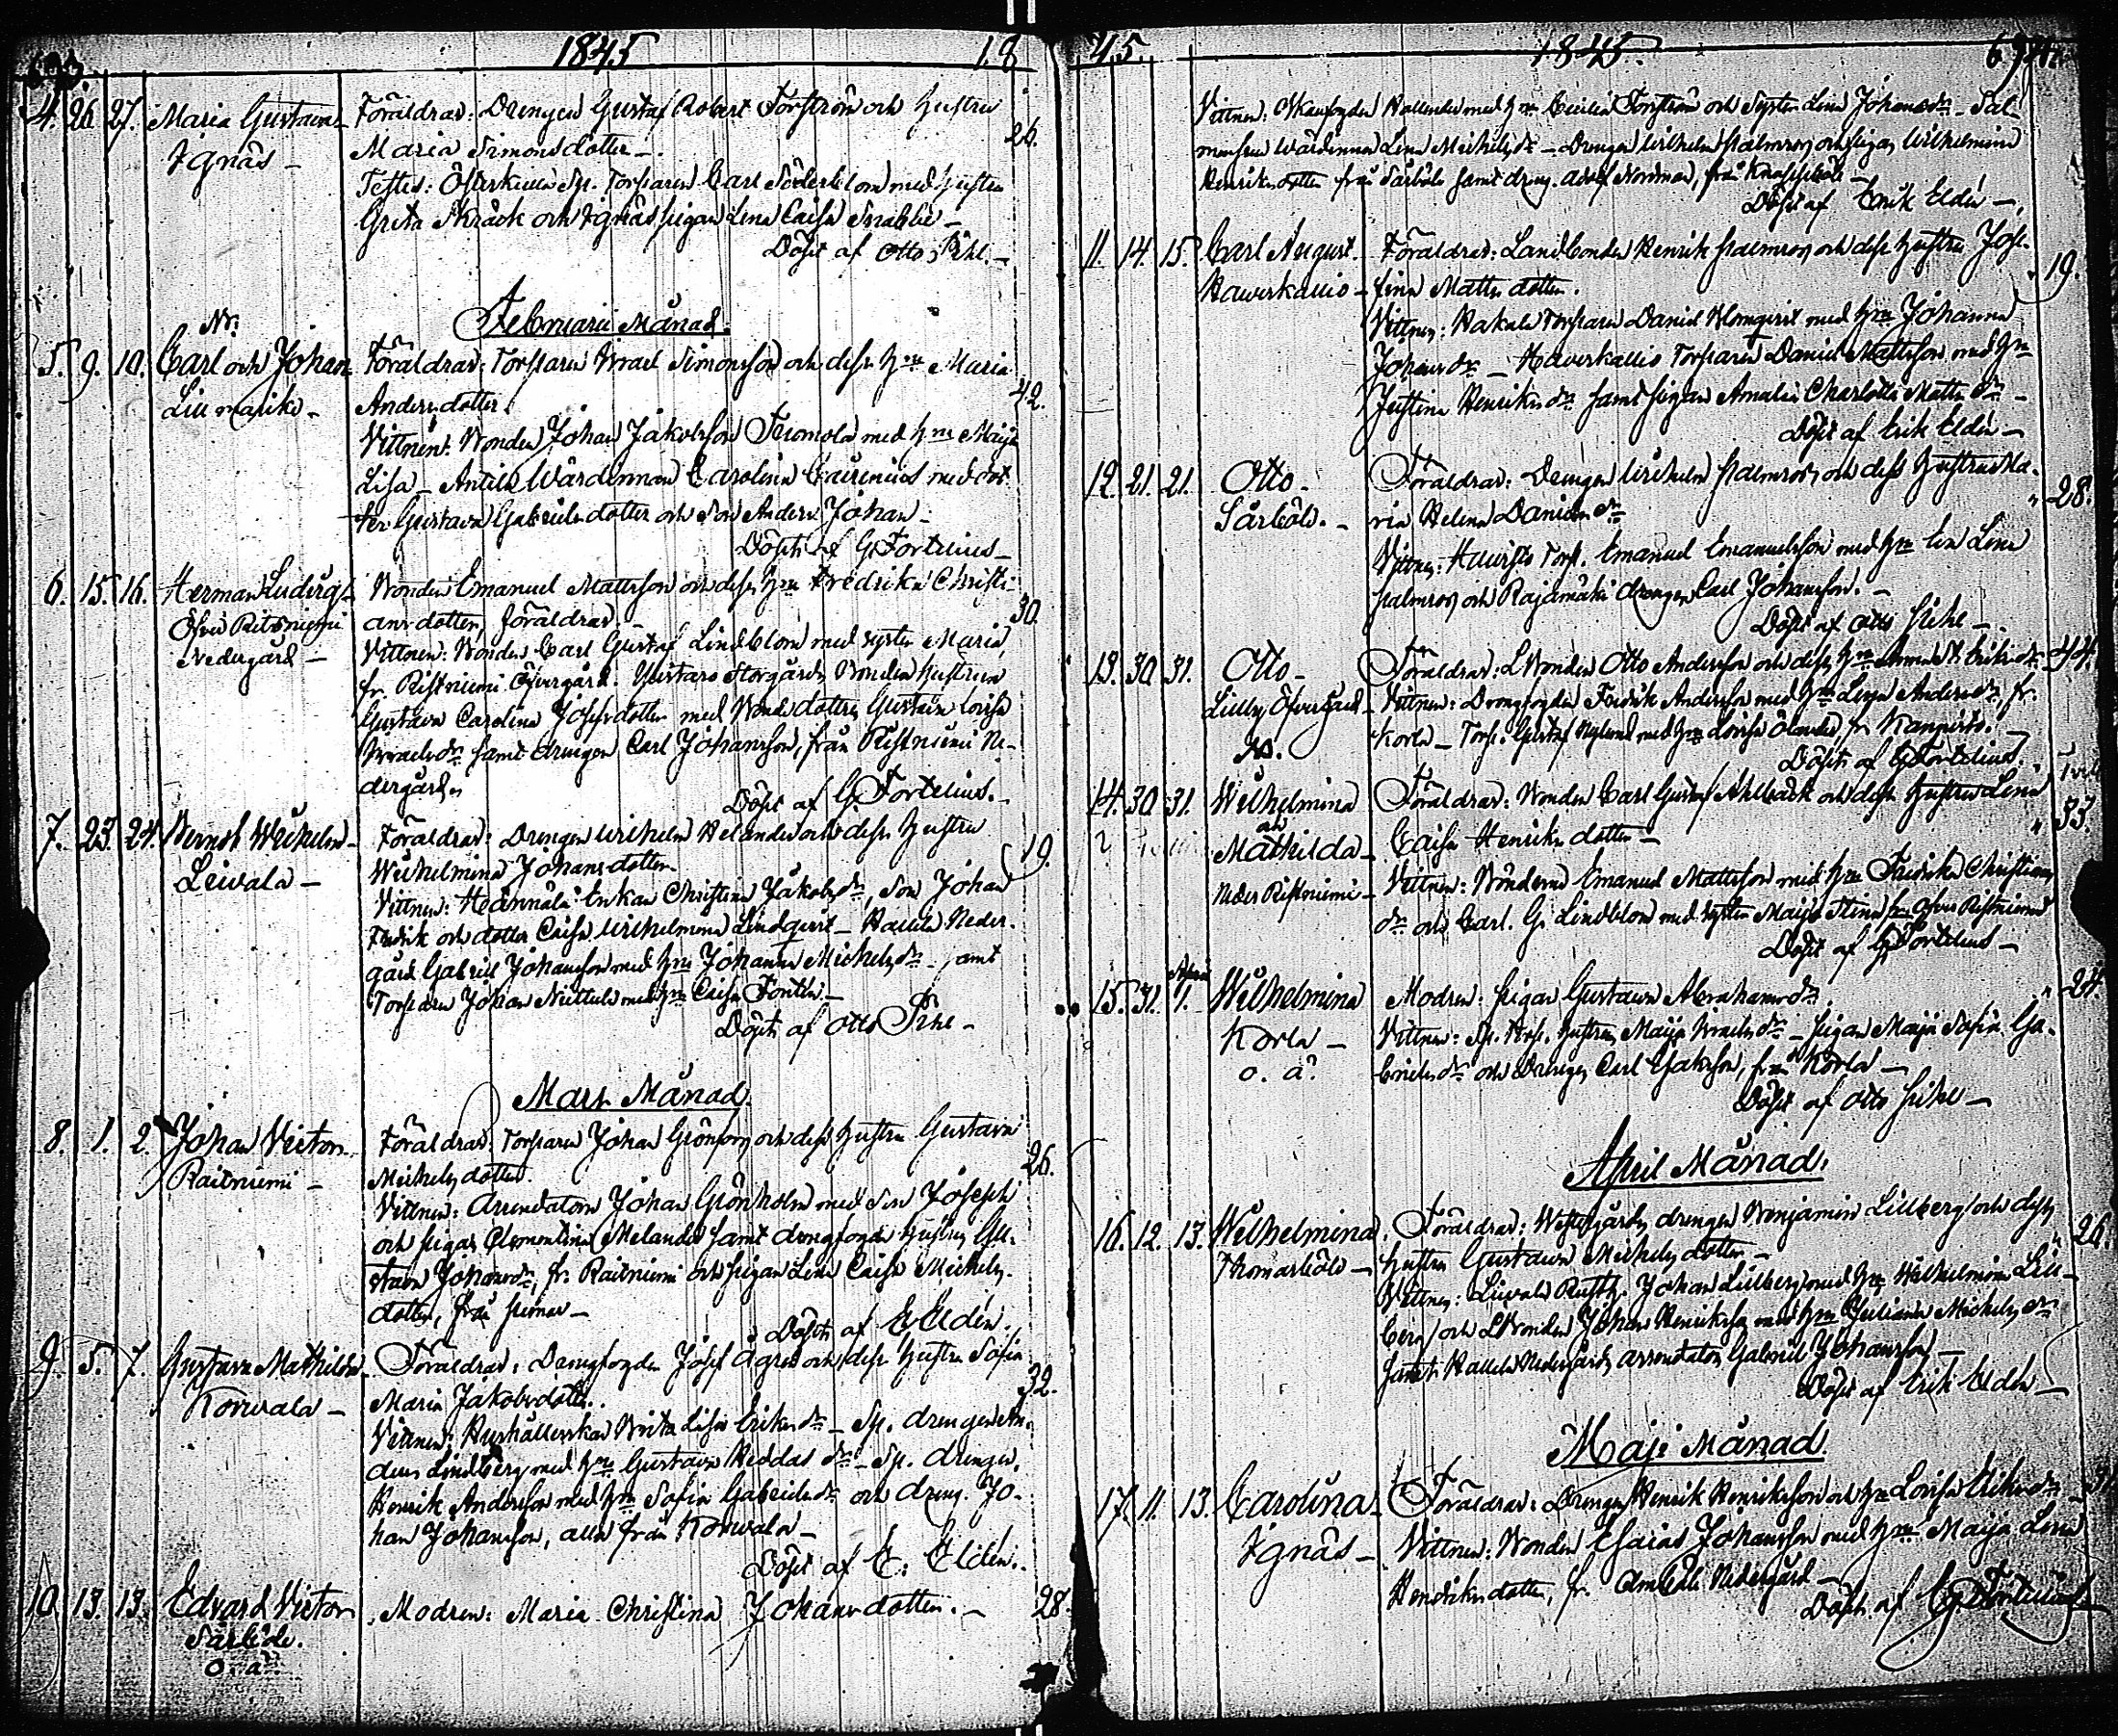 1845 18
4. 26 27. Maria Gustava Föräldrar: Drengen Gustaf Robert Forsström och hustru 26.
Ignäs Maria Simonsdotter
Testes: Österkulla Sp. Torparen Carl Söderblom med hustru
Greta Skräck och Ignäs pigan Lena Caisa Snabbe
Döpt af Otto Pihl.
Februarii Månad.
5. 9. 10. Carl och Johan Föräldrar: Torparen Israel Simonsson och dess hru Maria
Lill Andersdotter. 42.
Vittnen: Bonden Johan Jakobsson med hru Maija
Lisa Wärdinnan Carolina med dot
ter Gustava Gabrielsdotter och Son Anders Johan
Döpt af G Fortelius
6. 15. 16. Herman Ludvig Bonden Emanuel Mattsson och dess hru Fredrika Christi-
Öfver ansdotter, föräldrar. 30.
Nedergård Vittnen: Bonden Carl Gustaf Lindblom med syster Maria,
fr. Ristniemi Öfvergård. Storgårds Bonden hustrun
Gustava Carolina Josefsdotter med Bondedottren Gustava Lovisa
Israelsdr samt drengen Carl Johansson, från Ristniemi Ne-
dergård.
Döpt af G Fortelius.
7. 23. 24. Berndt Wilhelm Föräldrar: Drengen Wilhelm Helander och dess hustru
Leivala Wilhelmina Johansdotter 19.
Vittnen: Enkan Christina Jakobsdr, Son Johan
Fredrik och dotter Caisa Wilhelmina Lindqvist Neder-
gård Gabriel Johansson med hru Johanna Michelsdr samt
Torparen Johan med hru Caisa
Döpt af Otto Pihl
Mars Månad.
8. 1. 2. Johan Victor Föräldrar: Torparen Johan Grönfors och dess hustru Gustava
Raitniemi Michelsdotter. 26.
Vittnen: Arrendatorn Johan Grönholm med Son Joseph
och pigan Clementina Melander samt drengfogde hustrun Gu-
stava Johansdr, fr. Raitniemi och pigan Lena Caisa Michels-
dotter, från
Döpt af E Eldén.
9. 5. 7. Gustava Mathilda Föräldrar: Drengfogden Josef Ågren och dess hustru Sofia
Korvala Maria Jakobsdotter. 32.
Vittnen: Hushållerskan Brita Lisa Eriksdr Sp. drengen An-
ders Lindberg med hru Gustava Heddas dr Sp. drengen
Henrik Andersson med hru Sofia Gabrielsdr och dreng. Jo-
han Johansson, alla från Korvala
Döpt af E. Eldén.
10. 13. 13. Edvard Victor Modren: Maria Christina Johansdotter. 28.
Särböle.
o. ä.
45. 1845.
Vittnen: med hru Cecilia Forsström och Syster Lena Johansdr
Wärdinnan Lena Michelsdr Drengen Wilhelm Palmroos och pigan Wilhelmina
Henriksdotter från Särböle samt dreng. Adolf Nordman, från
Döpt af Erik Eldén
11. 14. 15. Carl August. Föräldrar: Landbonden Henrik Palmroos och dess hustru Jose-
Haverkallio fina Matts dotter. 19.
Vittnen: Hakala Torparen Daniel Blomqvist med hru Johanna
Johansdr Haverkallio Torparen Daniel Mattsson med hru
Justina Henriksdr samt pigan Amalia Charlotta Mattsdr
Döpt af Erik Eldén
12. 21. 21. Otto Föräldrar: Drengen Wilhelm Palmroos och dess hustru Ma-
Särböle. ria Helena Danielsdr 28.
Vittnen: Torp. Emanuel Emanuelsson med hru Eva Lena
Palmroos och Rajamäki drengen Carl Johansson.
Döpt af Otto Pihl
13. 30 31. Otto Föräldrar: LBonden Otto Andersson och dess hru Eriksdr 44.
Lilly Öfvergård Vittnen: Drengfogden Fredrik Andersson med hru Lena Andersdr, fr.
Korla Torp. Gustaf Nylund med hru Lovisa fr Kangisto.
Döpt af G Fortelius.
14. 30 31. Wilhelmina Föräldrar: Bonden Carl Gustaf Ahlbäck och dess hustru Lena
och Caisa Henriks dotter 33.
Mathilda
Neder Ristniemi Vittnen: Bönderne Emanuel Mattsson med hru Fredrika Christians
dr och Carl G. Lindblom med syster Maija Stina fr Öfver Ristniemi
Döpt af G Fortelius
April
15. 31. 1. Wilhelmina Modren: pigan Gustava Abrahamsdr. 24.
Korla Vittnen: Sp. Torp. hustrun Maija Israelsdr pigan Maija Sofia Ga-
o. ä. brielsdr och Drengen Carl Isaksson, från Korla
Döpt af Otto Pihl
April Månad.
16. 12. 13. Wilhelmina Föräldrar: Westergårds drengen Benjamin Lillberg och dess
Thomasböle hustru Gustava Michelsdotter 26.
Vittnen: Leivala Rusth. Johan Lillberg med hru Wilhelmina Lill-
berg och LBonden Johan Henriksson med hru Juliana Michelsdr
samt Nedergårds arrendator Gabriel Johansson
Döpt af Erik Eldén
Maji Månad.
17. 11. 13. Carolina Föräldrar: Drengen Henrik Henriksson och hru Lovisa Eriksdr
Ignäs Vittnen: Bonden Esaias Johansson med hru Maija Lena
Henriksdotter, fr. Nedergård
Döpt af G Fortelius